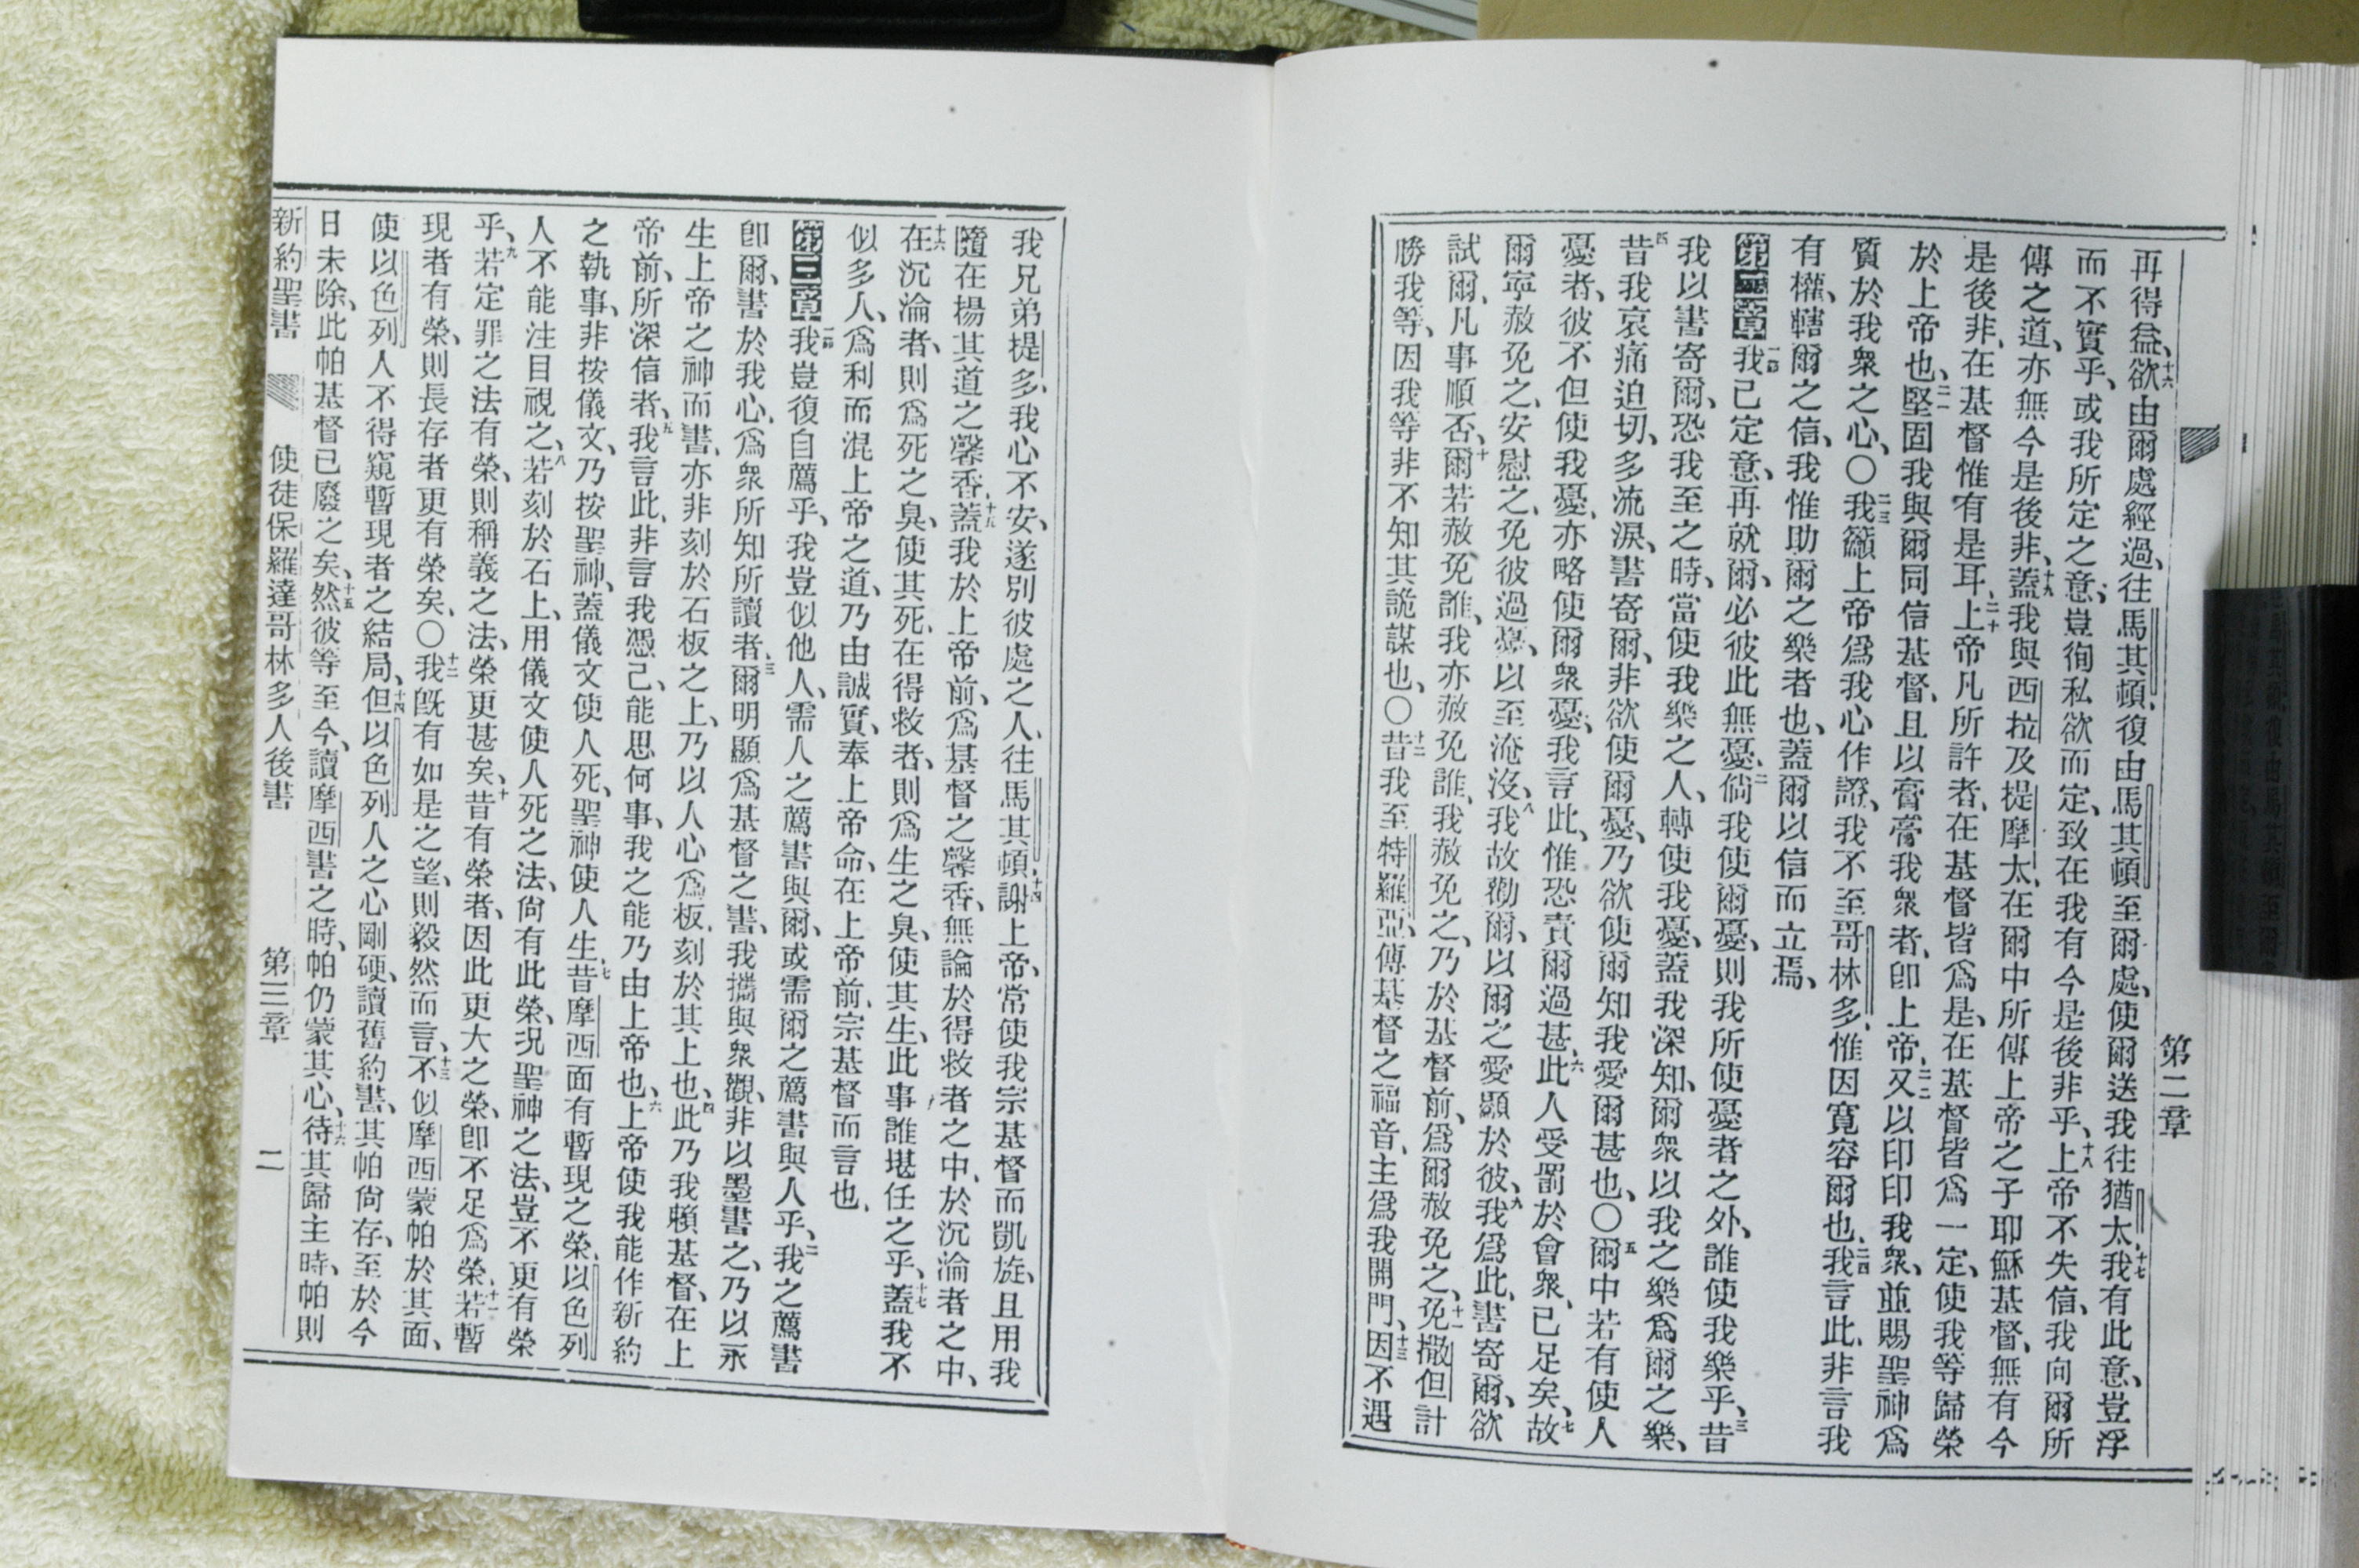 第二章
再得益、十六欲由爾處經過、往馬其頓、復由馬其頓至爾處、使爾送我往猶太、十七我有此意、豈浮
而不實乎、或我所定之意、豈徇私欲而定、致在我有今是後非乎、十八上帝不失信、我向爾所
傳之道、亦無今是後非、十九蓋我與西拉及提摩太、在爾中所傳上帝之子耶穌基督、無有今
是後非、在基督惟有是耳、二十上帝凡所許者、在基督皆為是、在基督皆為一定、使我等歸榮
於上帝也、二一堅固我與爾同信基督、且以膏膏我衆者、卽上帝、二二又以印印我衆、並賜聖神為
質於我衆之心、〇二三我籲上帝為我心作證、我不至哥林多、惟因寬容爾也、二四我言此、非言我
有權、轄爾之信、我惟助爾之樂者也、蓋爾以信而立焉、
第二章一節我已定意、再就爾、必彼此無憂、二倘我使爾憂、則我所使憂者之外、誰使我樂乎、三昔
我以書寄爾、恐我至之時、當使我樂之人、轉使我憂、蓋我深知、爾衆以我之樂為爾之樂、
四昔我哀痛迫切、多流淚、書寄爾、非欲使爾憂、乃欲使爾知我愛爾甚也、〇五爾中若有使人
憂者、彼不但使我憂、亦略使爾衆憂、我言此、惟恐責爾過甚、六此人受罰於會衆、已足矣、七故
爾寧赦免之、安慰之、免彼過憂、以至淹沒、八我故勸爾、以爾之愛顯於彼、九我為此、書寄爾、欲
試爾、凡事順否、十爾若赦免誰、我亦赦免誰、我赦免之、乃於基督前、為爾赦免之、十一免撒但計
勝我等、因我等非不知其詭謀也、〇十二昔我至特羅亞、傳基督之福音、主為我開門、十三因不遇
我兄弟提多、我心不安、遂別彼處之人、往馬其頓、十四謝上帝、常使我宗基督而凱旋、且用我
隨在揚其道之馨香、十五蓋我於上帝前、為基督之馨香、無論於得救者之中、於沉淪者之中、
十六在沉淪者、則為死之臭、使其死、在得救者、則為生之臭、使其生、此事誰堪任之乎、十七蓋我不
似多人、為利而混上帝之道、乃由誠實、奉上帝命、在上帝前、宗基督而言也、
第三章一節我豈復自薦乎、我豈似他人、需人之薦書與爾、或需爾之薦書與人乎、二我之薦書
卽爾、書於我心、為衆所知所讀者、三爾明顯為基督之書、我攜與衆觀、非以墨書之、乃以永
生上帝之神而書、亦非刻於石板之上、乃以人心為板、刻於其上也、四此乃我賴基督、在上
帝前、所深信者、五我言此、非言我憑己、能思何事、我之能乃由上帝也、六上帝使我能作新約
之執事、非按儀文、乃按聖神、蓋儀文使人死、聖神使人生、七昔摩西面有暫現之榮、以色列
人不能注目視之、八若刻於石上、用儀文使人死之法、尙有此榮、況聖神之法、豈不更有榮
乎、九若定罪之法有榮、則稱義之法、榮更甚矣、十昔有榮者、因此更大之榮、卽不足為榮、十一若暫
現者有榮、則長存者更有榮矣、〇十二我旣有如是之望、則毅然而言、十三不似摩西蒙帕於其面、
使以色列人不得窺暫現者之結局、十四但以色列人之心剛硬、讀舊約書、其帕尙存、至於今
日未除、此帕基督已廢之矣、十五然彼等至今、讀摩西書之時、帕仍蒙其心、十六待其歸主時、帕則
新約聖書 使徒保羅達哥林多人後書 第三章 二